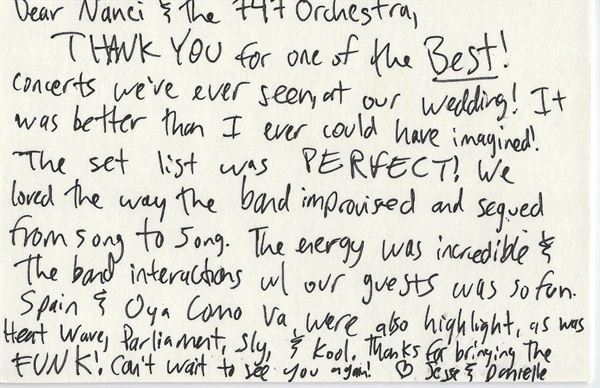 Dear Nanci & The 747 Orchestra,
THANK YOU for one of the Best!
concerts we've ever seen, at our wedding! It
was better than I ever could have imagined!
The set list was PERFECT! We
loved the way the band improvised and segued
from song to song. The energy was incredible &
The band interactions w/ our guests was so fun.
Spain & Oya Como Va, were also highlight, as was
Heat Wave, Parliament, Sly, & Kool. Thanks for bringing the
FUNK! Can't wait to see you again! ♡ Jesse & Danielle